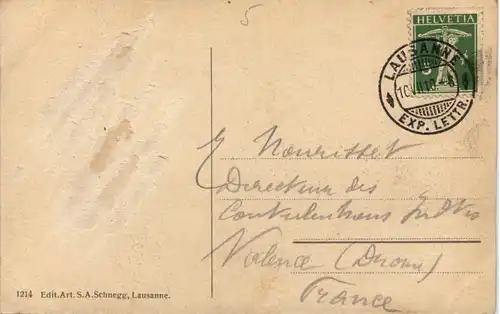 5
HELVETIA
LAUSANNE
EXP. LETTR.
E Nourisset
Directeur des
Contributions Indtes
Valence (Drome)
France
1214 Edit.Art. S.A.Schnegg, Lausanne.